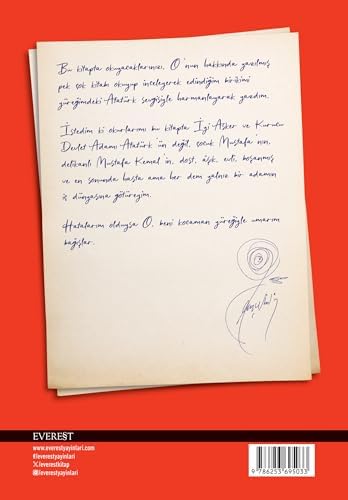 Bu kitapta okuyacaklarınızı, O'nun hakkında yazılmış
pek çok kitabı okuyup inceleyerek edindiğim birikimi
yüreğimdeki Atatürk sevgisiyle harmanlayarak yazdım.
İstedim ki okurlarımı bu kitapta İyi Asker ve Kurucu
Devlet Adamı Atatürk'ün değil, çocuk Mustafa'nın,
delikanlı Mustafa Kemal'in, dost, âşık, evli, boşanmış
ve en sonunda hasta ama her dem yalnız bir adamın
iç dünyasına götüreyim.
Hatalarım olduysa O, beni kocaman yüreğiyle umarım
bağışlar.
EVEREST
www.everestyayinlari.com
/everestyayinlari
/everestkitap
/everestyayinlari
9 786253 695033